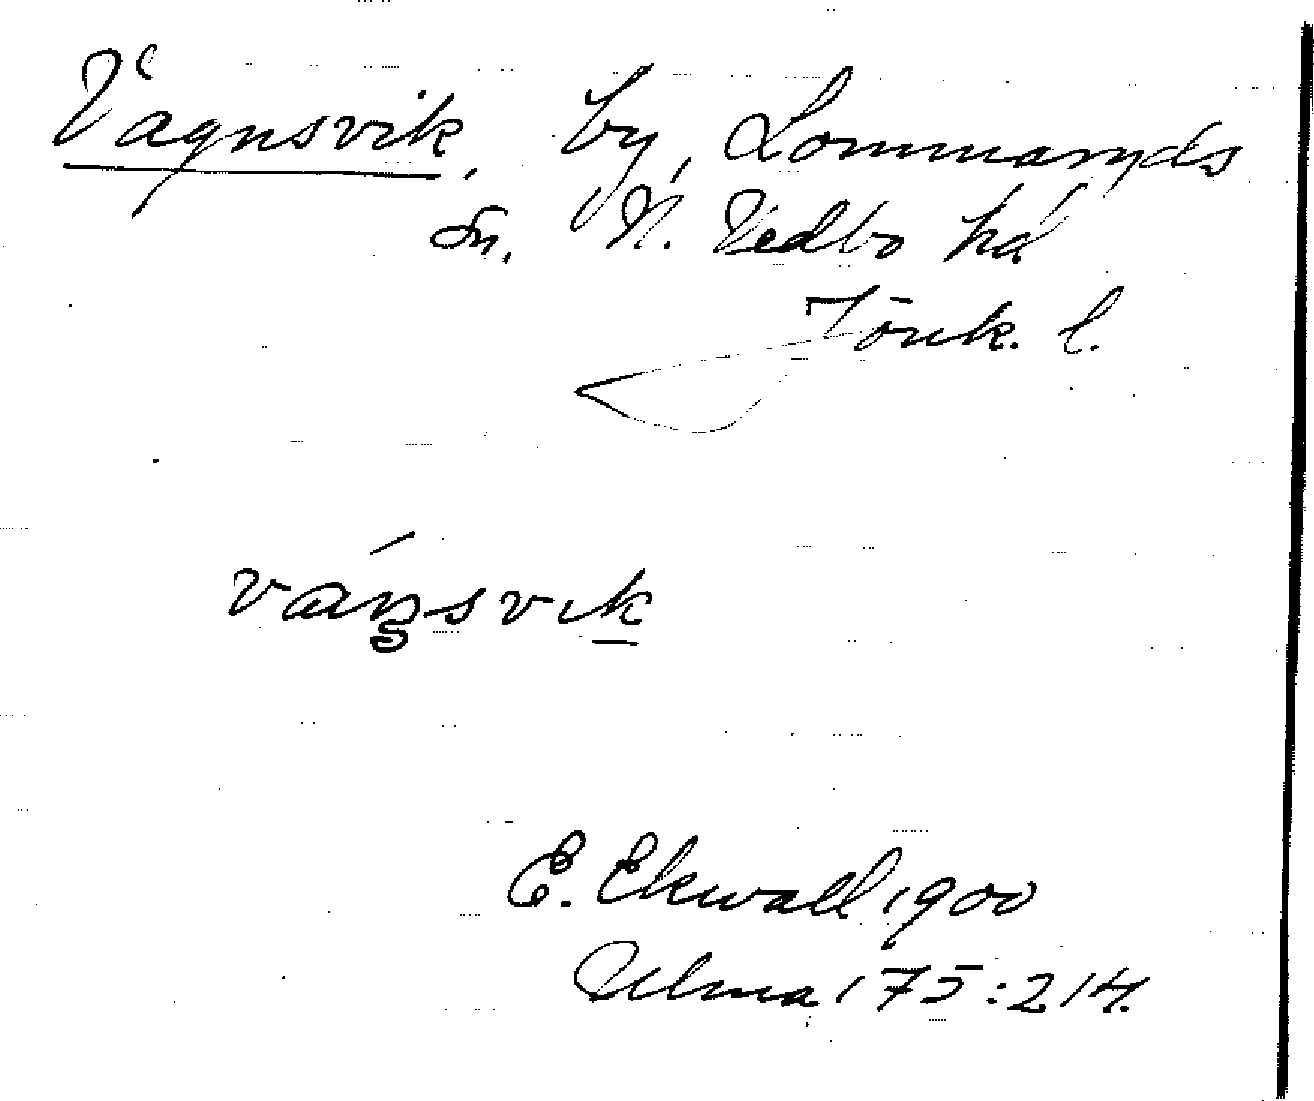 Vagnsvik, by, Lommaryds
sn. N. Vedbo hd
Jönk. l.
E. Ekwall 1900
Ulma 175:214.